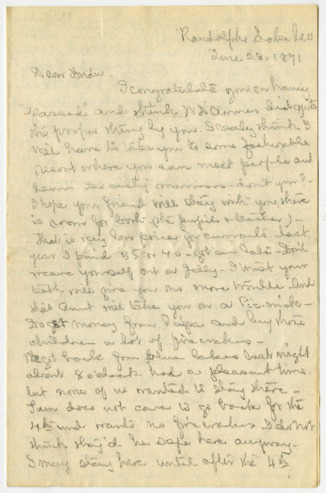 Randolph, Lake Geo
June 28, 1891
Dear
I congratulate you on having
"passed" and think did quite
the proper thing by you. I really think I
will have to take you to some fashionable
resort where you can meet people and
learn society manners - don't you? -
I hope your friend will stay with you there
is room for both (the pupils & teacher) -
That is very low price for currants last
year I paid 35 or 40 - Don't
wear yourself out on Jelly - I trust your
teeth will give you no more trouble and
that Aunt will take you on a Pic-nick -
Do get money from Papa and buy those
children a lot of fire crackers -
We got back from last night
about 8 o'clock had a pleasant time
but none of us wanted to stay there -
Sam does not care to go back for the
4th and wants no fire crackers I do not
think they'd be safe here anyway.
I may stay here until after the 4th